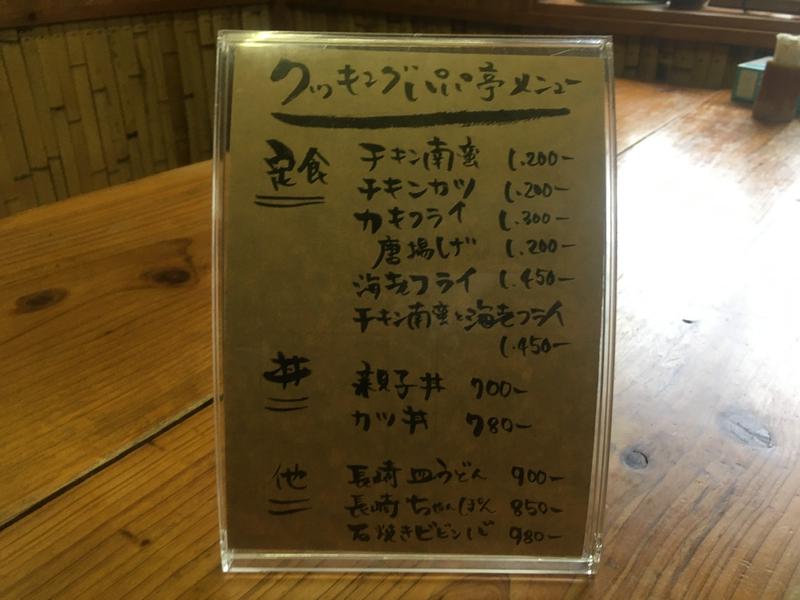 クッキングパパ亭メニュー
定食 チキン南蛮 1.200-
チキンカツ 1.200-
カキフライ 1.300-
唐揚げ 1.200-
海老フライ 1.450-
チキン南蛮と海老フライ
1.450-
丼 親子丼 700-
カツ丼 780-
他 長崎皿うどん 900-
長崎ちゃんぽん 850-
石焼きビビンバ 980-